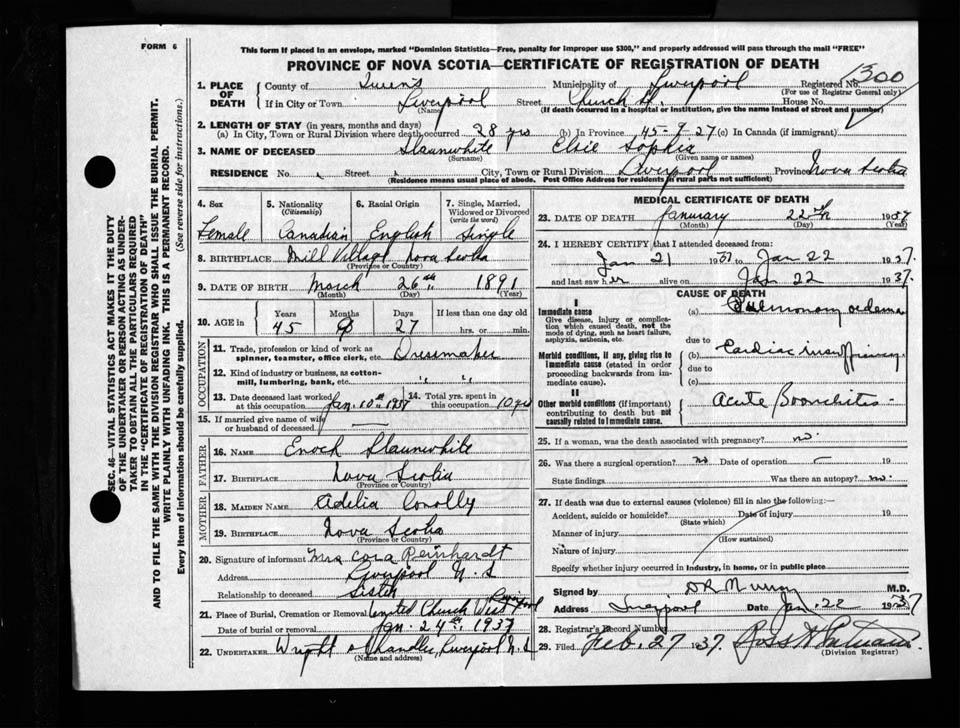 FORM 6
This form if placed in an envelope, marked "Dominion Statistics—Free, penalty for improper use $300," and properly addressed will pass through the mail "FREE"
PROVINCE OF NOVA SCOTIA—CERTIFICATE OF REGISTRATION OF DEATH
SEC. 46—VITAL STATISTICS ACT MAKES IT THE DUTY
OF THE UNDERTAKER OR PERSON ACTING AS UNDER-
TAKER TO OBTAIN ALL THE PARTICULARS REQUIRED
IN THE "CERTIFICATE OF REGISTRATION OF DEATH"
AND TO FILE THE SAME WITH THE DIVISION REGISTRAR WHO SHALL ISSUE THE BURIAL PERMIT.
WRITE PLAINLY WITH UNFADING INK. THIS IS A PERMANENT RECORD.
Every item of information should be carefully supplied. (See reverse side for instructions.)
1. PLACE OF DEATH County of Queens Municipality of Liverpool Registered No. 1300
(For use of Registrar General only)
If in City or Town Liverpool Street Church St. House No.
(Name) (If death occurred in a hospital or institution, give the name instead of street and number)
2. LENGTH OF STAY (in years, months and days)
(a) In City, Town or Rural Division where death occurred 28 yrs (b) In Province 45-9-27 (c) In Canada (if immigrant)
3. NAME OF DECEASED Slaunwhite Elsie Sophia
(Surname) (Given name or names)
RESIDENCE No. Street City, Town or Rural Division Liverpool Province Nova Scotia
(Residence means usual place of abode. Post Office Address for residents in rural parts not sufficient)
4. Sex 5. Nationality (Citizenship) 6. Racial Origin 7. Single, Married, Widowed or Divorced (write the word)
Female Canadian English Single
8. BIRTHPLACE Mill Village Nova Scotia
(Province or Country)
9. DATE OF BIRTH March 26th 1891
(Month) (Day) (Year)
10. AGE in Years Months Days If less than one day old
45 9 27 hrs. or min.
OCCUPATION
11. Trade, profession or kind of work as spinner, teamster, office clerk, etc. Dressmaker
12. Kind of industry or business, as cotton-mill, lumbering, bank, etc. " "
13. Date deceased last worked at this occupation Jan. 10th 1937 14. Total yrs. spent in this occupation 10 yrs
15. If married give name of wife or husband of deceased
FATHER
16. NAME Enoch Slaunwhite
17. BIRTHPLACE Nova Scotia
(Province or Country)
MOTHER
18. MAIDEN NAME Adelia Conolly
19. BIRTHPLACE Nova Scotia
(Province or Country)
20. Signature of informant Mrs Cora Reinhardt
Address Liverpool N.S
Relationship to deceased Sister
21. Place of Burial, Cremation or Removal United Church Liverpool
Date of burial or removal Jan. 24th 1937
22. UNDERTAKER Wright Chandler, Liverpool N.S
(Name and address)
MEDICAL CERTIFICATE OF DEATH
23. DATE OF DEATH January 22nd 1937
(Month) (Day) (Year)
24. I HEREBY CERTIFY that I attended deceased from:
Jan 21 1937 to Jan 22 1937
and last saw her alive on Jan 22 1937.
CAUSE OF DEATH
I
Immediate cause
Give disease, injury or complication which caused death, not the mode of dying, such as heart failure, asphyxia, asthenia, etc.
(a) Pulmonary oedema
due to
Morbid conditions, if any, giving rise to immediate cause (stated in order proceeding backwards from immediate cause).
(b) Cardiac insufficiency
due to
(c)
II
Other morbid conditions (if important) contributing to death but not causally related to immediate cause.
Acute Bronchitis
25. If a woman, was the death associated with pregnancy? no.
26. Was there a surgical operation? no Date of operation 19
State findings Was there an autopsy? no
27. If death was due to external causes (violence) fill in also the following:—
Accident, suicide or homicide? Date of injury 19
(State which)
Manner of injury
(How sustained)
Nature of injury
Specify whether injury occurred in industry, in home, or in public place
Signed by M.D.
Address Liverpool Date Jan. 22 1937
28. Registrar's Record Number
29. Filed Feb. 27 1937.
(Division Registrar)